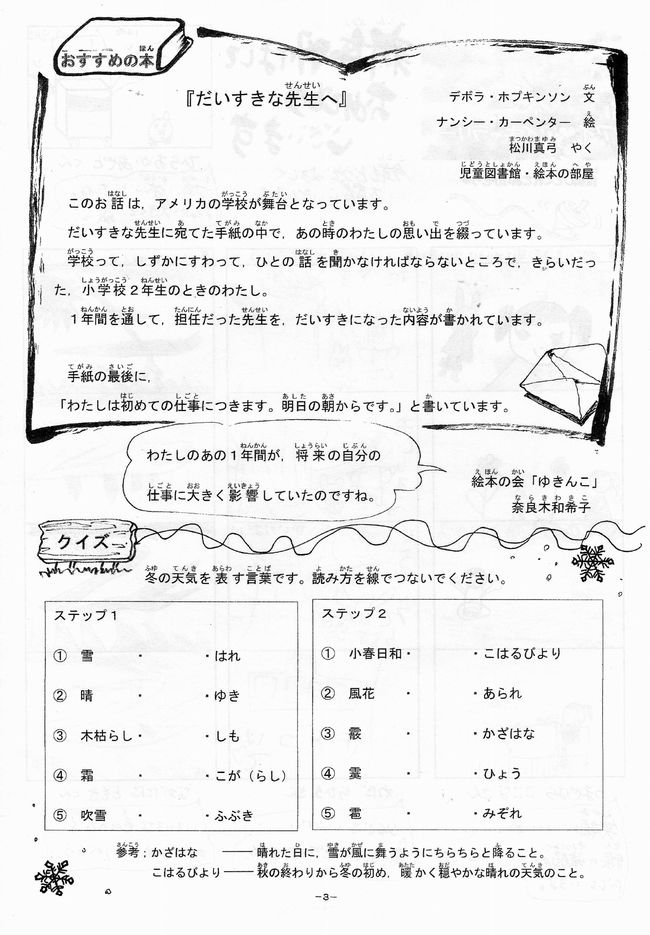 おすすめの本
『だいすきな先生へ』
デボラ・ホプキンソン 文
ナンシー・カーペンター 絵
松川真弓 やく
児童図書館・絵本の部屋
このお話は，アメリカの学校が舞台となっています。
だいすきな先生に宛てた手紙の中で，あの時のわたしの思い出を綴っています。
学校って，しずかにすわって，ひとの話を聞かなければならないところで，きらいだっ
た，小学校２年生のときのわたし。
１年間を通して，担任だった先生を，だいすきになった内容が書かれています。
手紙の最後に，
「わたしは初めての仕事につきます。明日の朝からです。」と書いています。
わたしのあの１年間が，将来の自分の
仕事に大きく影響していたのですね。
絵本の会「ゆきんこ」
奈良木和希子
クイズ
冬の天気を表す言葉です。読み方を線でつないでください。
ステップ１
① 雪 ・ ・はれ
② 晴 ・ ・ゆき
③ 木枯らし・ ・しも
④ 霜 ・ ・こが（らし）
⑤ 吹雪 ・ ・ふぶき
ステップ２
① 小春日和・ ・こはるびより
② 風花 ・ ・あられ
③ ・ ・かざはな
④ ・ ・ひょう
⑤ 雹 ・ ・みぞれ
参考；かざはな ――晴れた日に，雪が風に舞うようにちらちらと降ること。
こはるびより――秋の終わりから冬の初め，暖かく穏やかな晴れの天気のこと。
−3−